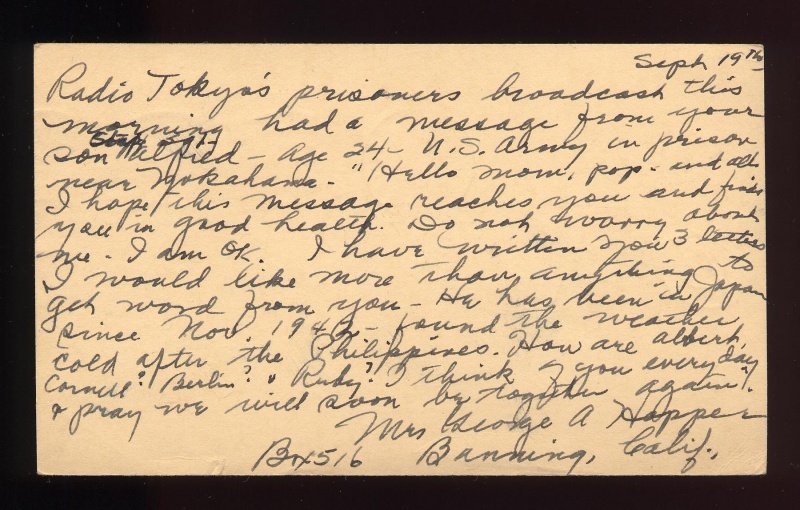 Sept 19th
Radio Tokyo's prisoners broadcast this
morning had a message from your
son Alfred - age 24 - U.S. Army in prison
near Yokahama. "Hello mom, pop. and all
I hope this message reaches you and finds
you in good health. Do not worry about
me. I am OK. I have written you 3 letters
I would like more than anything to
get word from you - He has been in Japan
since Nov. 1942 - found the weather
cold after the Philippines. How are albert,
Cornell? Berlin? & Rudy? I think of you everyday
& pray we will soon be together again".
Mrs George A Hopper
Box 516 Banning, Calif.